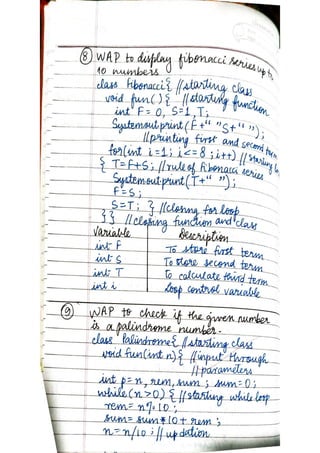 ⑧ WAP to display fibonacci series upto
10 numbers
class fibonacci{ //starting class
void fun() { //starting function
int F=0, S=1, T;
System.out.print (F+" "S+" ");
//printing first and second term
for(int i=1; i<=8; i++) //starting
{ T=F+S; //rule of fibonacci series
System.out.print (T+" ");
F=S;
S=T; } //closing for loop
}} //closing function and class
Variable Description
int F To store first term
int S To store second term
int T to calculate third term
int i loop control variable
⑨ WAP to check if the given number
is a palindrome number.
class Palindrome{ //starting class
void fun(int n){ //input through
//parameters
int p=n, rem, sum; sum=0;
while(n>0) { //starting while loop
rem= n%10;
sum= sum*10+rem;
n=n/10; //updation